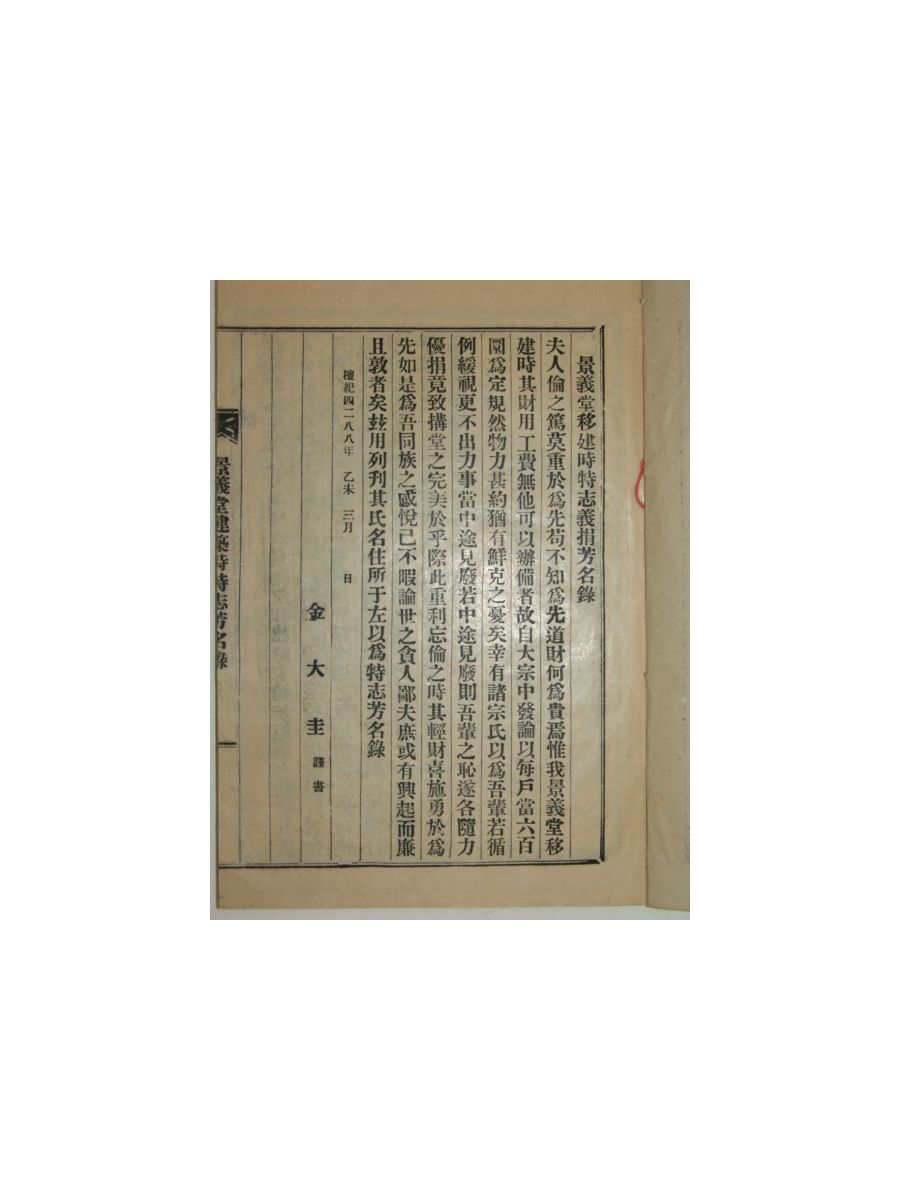 景義堂移建時特志義捐芳名錄
夫人倫之篤莫重於爲先苟不知爲先道財何爲貴焉惟我景義堂移
建時其財用工費無他可以辦備者故自大宗中發論以每戶當六百
圜爲定規然物力甚約猶有鮮克之憂矣幸有諸宗氏以爲吾輩若循
例緩視更不出力事當中途見廢若中途見廢則吾輩之恥遂各隨力
優捐竟致搆堂之完美於乎際此重利忘倫之時其輕財喜施勇於爲
先如是爲吾同族之感悅己不暇論世之貪人鄙夫庶或有興起而廉
且敦者矣玆用列刊其氏名住所于左以爲特志芳名錄
檀紀四二八八年 乙未 三月 日
金大圭 謹書
景義堂建築時特志芳名錄 一